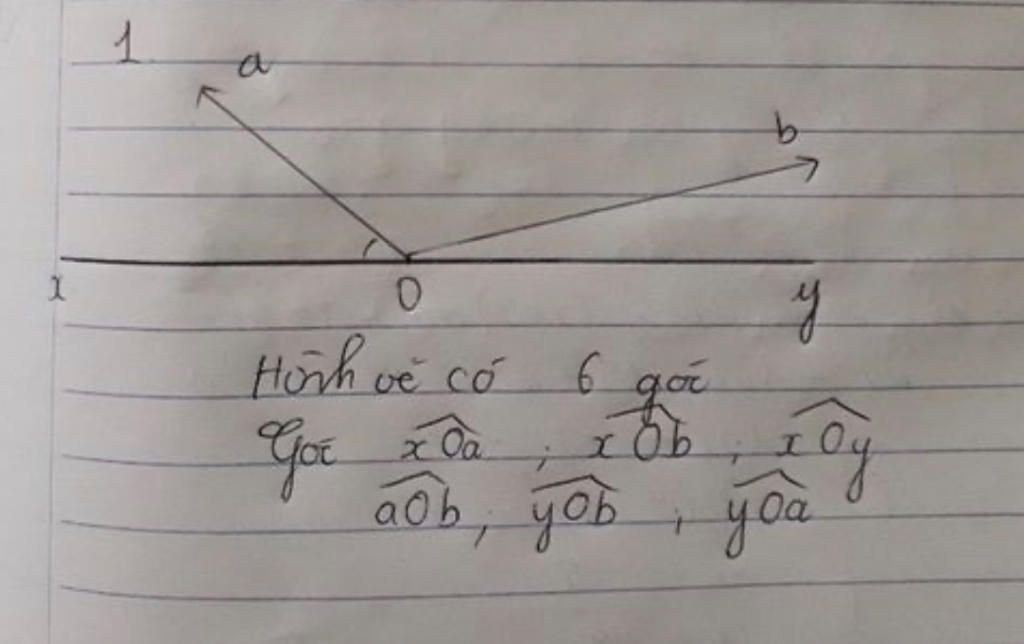 1
a
b
x
O
y
Hình vẽ có 6 góc
Góc xOa ; xOb ; xOy
aOb, yOb , yOa